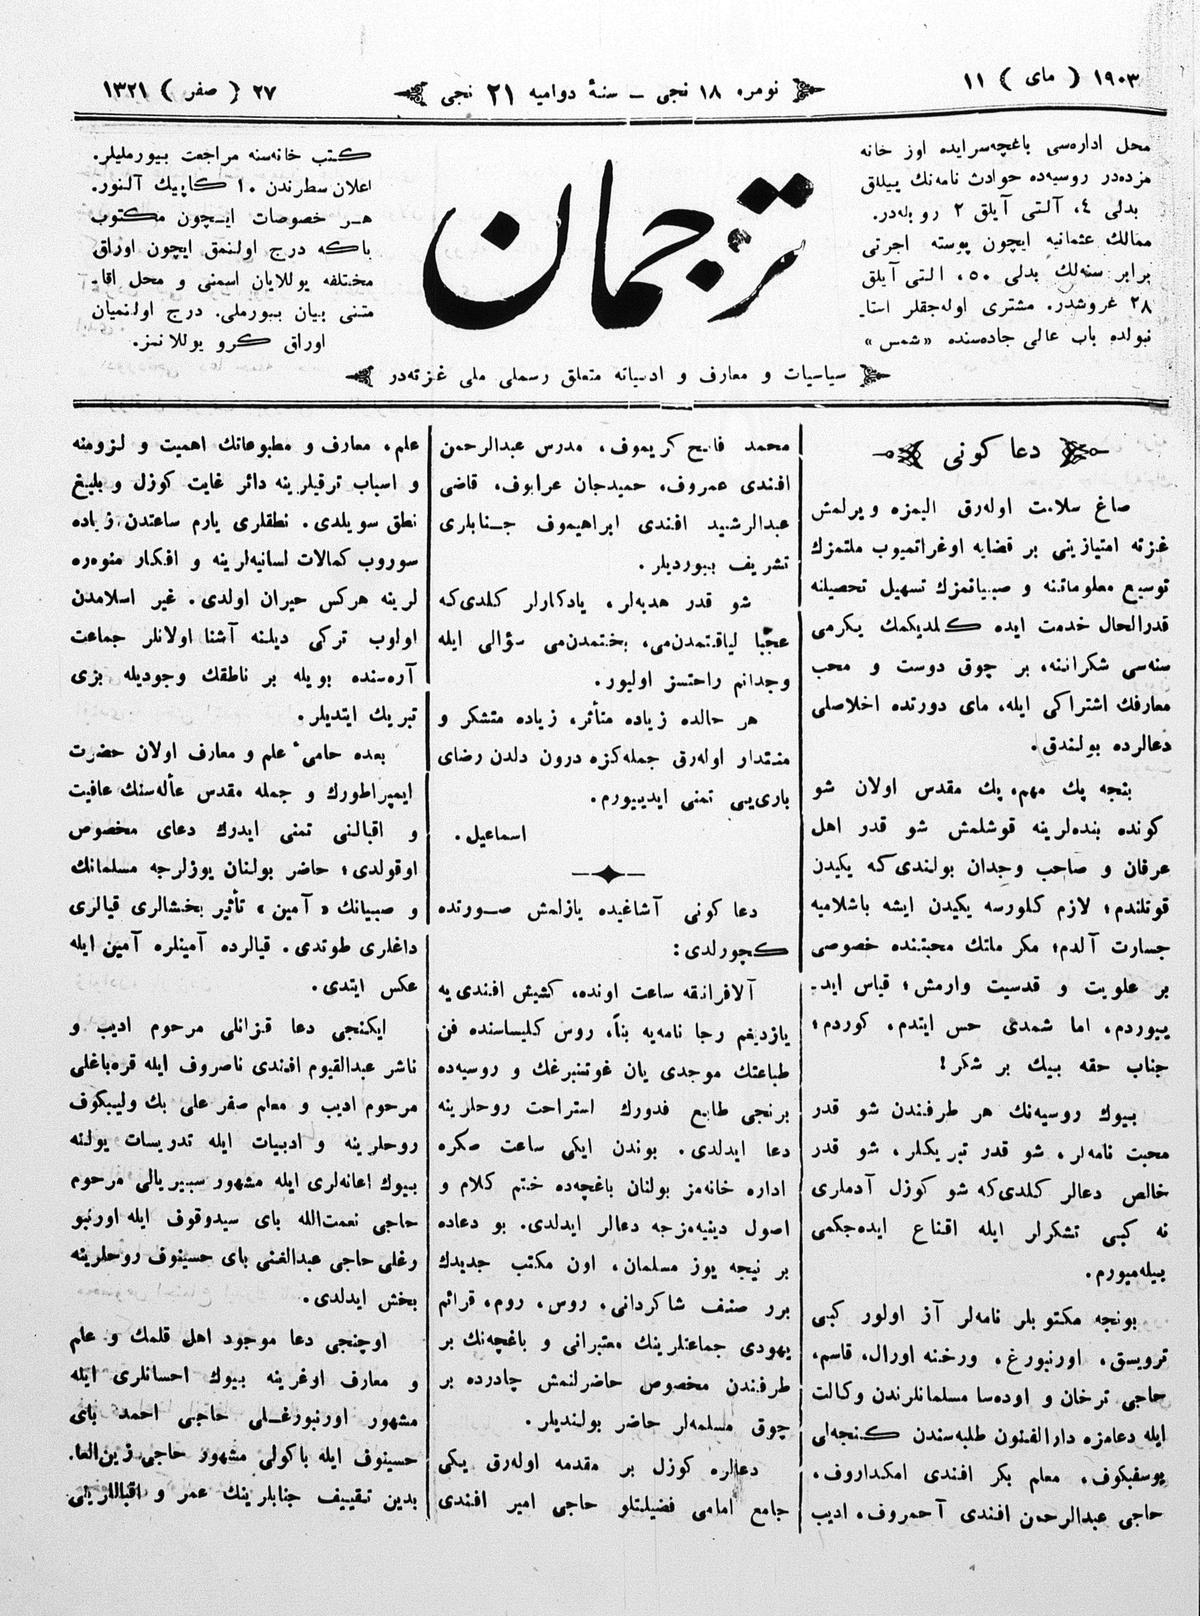 ١٩٠٣ ( مای ) ١١
نومره ١٨ نجی ــ سنهٔ دوامیه ٢١ نجی
٢٧ ( صفر ) ١٣٢١
محل اداره‌سی باغچه‌سرایده اوز خانه
مزده‌در روسیه‌ده حوادث نامه‌نك ییللق
بدلی ٤، آلتی آیلق ٢ روبله‌در.
ممالك عثمانیه ایچون پوسته اجرتی
برابر سنه‌لك بدلی ٥٠، التی آیلق
٢٨ غروشدر. مشتری اوله‌جقلر استا۔
نبولده باب عالی جاده‌سنده «شمس»
ترجمان
كتب خانه‌سنه مراجعت بیورملیلر.
اعلان سطرندن ١٠ كاپیك آلنور.
هر خصوصات ایچون مكتوب
باكه درج اولنمق ایچون اوراق
مختلفه یوللایان اسمنی و محل اقا۔
متنی بیان بیورملی. درج اولنمیان
اوراق كرو یوللانمز.
سیاسیات و معارف و ادبیاته متعلق رسملی ملی غزته‌در
دعا كونی
صاغ سلامت اوله‌رق الیمزه ویرلمش
غزته امتیازینی بر قضایه اوغراتمیوب ملتمزك
توسیع معلوماتنه و صبیانمزك تسهیل تحصیلنه
قدرالحال خدمت ایده كلدیكمك یكرمی
سنه‌سی شكراننه، بر چوق دوست و محب
معارفك اشتراكی ایله، مای دورتده اخلاصلی
دعالرده بولندق.
بنجه پك مهم، پك مقدس اولان شو
كونده بنده‌لرینه قوشلمش شو قدر اهل
عرفان و صاحب وجدان بولندی‌كه یكیدن
قوتلندم؛ لازم كلورسه یكیدن ایشه باشلامیه
جسارت آلدم؛ مكر ملتك محبتنده خصوصی
بر علویت و قدسیت وارمش؛ قیاس اید۔
ییوردم، اما شمدی حس ایتدم، كوردم؛
جناب حقه بیك بر شكر!
بیوك روسیه‌نك هر طرفندن شو قدر
محبت نامه‌لر، شو قدر تبریكلر، شو قدر
خالص دعالر كلدی‌كه شو كوزل آدملری
نه كبی تشكرلر ایله اقناع ایده‌جكمی
بیله‌میورم.
بونجه مكتوبلر نامه‌لر آز اولور كبی
ترویسق، اورنبورغ، ورخنه اورال، قاسم،
حاجی ترخان و اوده‌سا مسلمانلرندن وكالت
ایله دعامزه دارالفنون طلبه‌سندن كنجه‌لی
یوسفبكوف، معلم بكر افندی امكداروف،
حاجی عبدالرحمن افندی آحمروف، ادیب
محمد فاتح كریموف، مدرس عبدالرحمن
افندی عمروف، حمیدجان عرابوف، قاضی
عبدالرشید افندی ابراهیموف جنابلری
تشریف بیوردیلر.
شو قدر هدیه‌لر، یادكارلر كلدی‌كه
عجبا لیاقتمدن‌می، بختمدن‌می سؤالی ایله
وجدانم راحتسز اولیور.
هر حالده زیاده متأثر، زیاده متشكر و
منتدار اوله‌رق جمله‌كزه درون دلدن رضای
باری‌یی تمنی ایدییورم.
اسماعیل.
دعا كونی آشاغیده یازلمش صورتده
كچورلدی:
آلافرانقه ساعت اونده، كشیش افندی یه
یازدیغم رجا نامه‌یه بناً، روس كلیساسنده فن
طباعتك موجدی یان غوتنبرغك و روسیه‌ده
برنجی طابع فدورك استراحت روحلرینه
دعا ایدلدی. بوندن ایكی ساعت صكره
اداره خانه‌مز بولنان باغچه‌ده ختم كلام و
اصول دینیه‌مزجه دعالر ایدلدی. بو دعاده
بر نیجه یوز مسلمان، اون مكتب جدیدك
برر صنف شاكردانی، روس، روم، قرائم
یهودی جماعتلرینك معتبرانی و باغچه‌نك بر
طرفندن مخصوص حاضرلنمش چادرده بر
چوق مسلمه‌لر حاضر بولندیلر.
دعالره كوزل بر مقدمه اوله‌رق یكی
جامع امامی فضیلتلو حاجی امیر افندی
علم، معارف و مطبوعاتك اهمیت و لزومنه
و اسباب ترقیلرینه دائر غایت كوزل و بلیغ
نطق سویلدی. نطقلری یارم ساعتدن زیاده
سوروب كمالات لسانیه‌لرینه و افكار منوره
لرینه هركس حیران اولدی. غیر اسلامدن
اولوب تركی دیلنه آشنا اولانلر جماعت
آره‌سنده بویله بر ناطقك وجودیله بزی
تبریك ایتدیلر.
بعده حامیٔ علم و معارف اولان حضرت
ایمپراطورك و جمله مقدس عأله‌سنك عافیت
و اقبالنی تمنی ایدرك دعای مخصوص
اوقولدی؛ حاضر بولنان یوزلرجه مسلمانك
و صبیانك «آمین» تأثیر بخشالری قیالری
داغلری طوتدی. قیالرده آمینلره آمین ایله
عكس ایتدی.
ایكنجی دعا قزانلی مرحوم ادیب و
ناشر عبدالقیوم افندی ناصروف ایله قره‌باغلی
مرحوم ادیب و معلم صفر علی بك ولیبكوف
روحلرینه و ادبیات ایله تدریسات یولنه
بیوك اعانه‌لری ایله مشهور سیبریالی مرحوم
حاجی نعمت‌الله بای سیدوقوف ایله اورنبو
رغلی حاجی عبدالغنی بای حسینوف روحلرینه
بخش ایدلدی.
اوچنجی دعا موجود اهل قلمك و علم
و معارف اوغرینه بیوك احسانلری ایله
مشهور اورنبورغلی حاجی احمد بای
حسینوف ایله باكولی مشهور حاجی زین‌العا۔
بدین تقییف جنابلرینك عمر و اقباللریلی